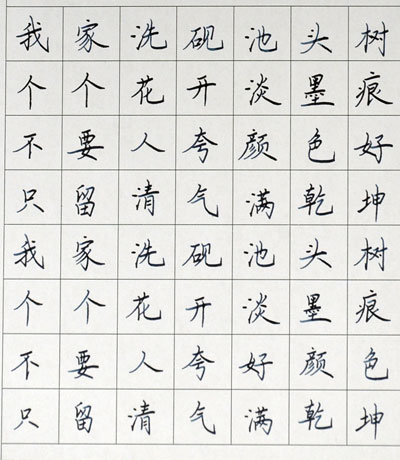 我家洗砚池头树
个个花开淡墨痕
不要人夸颜色好
只留清气满乾坤
我家洗砚池头树
个个花开淡墨痕
不要人夸好颜色
只留清气满乾坤